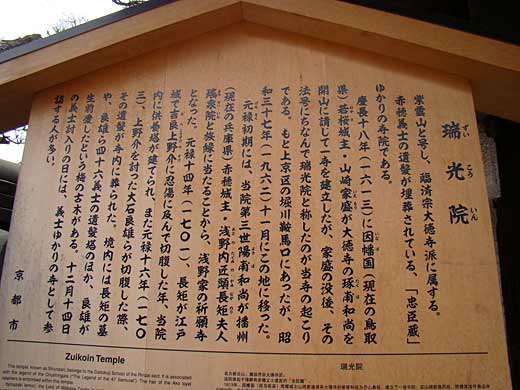 瑞光院
ずいこういん
紫雲山と号し、臨済宗大徳寺派に属する。
赤穂義士の遺髪が埋葬されている、「忠臣蔵」
ゆかりの寺院である。
慶長十八年(一六一三)に因幡国(現在の鳥取
県)若桜城主・山崎家盛が大徳寺の琢甫和尚を
開山に請じて一寺を建立したが、家盛の没後、その
法号にちなんで瑞光院と称したのが当寺の起こり
である。もと上京区の堀川鞍馬口にあったが、昭
和三十七年(一九六二)十一月にこの地に移った。
元禄初期には、当院第三世陽甫和尚が播州
(現在の兵庫県)赤穂城主・浅野内匠頭長矩夫人
瑶泉院と族縁に当たることから、浅野家の祈願寺
となった。元禄十四年(一七〇一)、長矩が江戸
城で吉良上野介に刃傷に及んで切腹した年、当院
内に供養塔が建てられ、また元禄十六年(一七〇
三)、上野介を討った大石良雄らが切腹した際、
その遺髪が寺内に葬られた。境内には長矩の墓
や、良雄ら四十六義士の遺髪塔のほか、良雄が
生前愛したという梅の古木がある。十二月十四日
の義士討入りの日には、義士ゆかりの寺として参
詣する人が多い。
京都市
Zuikoin Temple
瑞光院